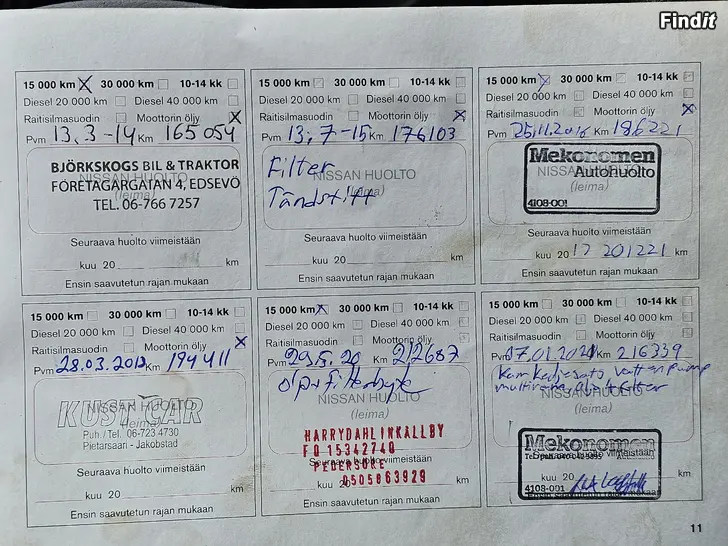 Findit
15 000 km X 30 000 km 10-14 kk
Diesel 20 000 km Diesel 40 000 km
Raitisilmasuodin Moottorin öljy X
Pvm 13.3-14 Km 165 054
BJÖRKSKOGS BIL & TRAKTOR
NISSAN HUOLTO
FÖRETAGARGATAN 4, EDSEVÖ
(leima)
TEL. 06-766 7257
Seuraava huolto viimeistään
kuu 20 km
Ensin saavutetun rajan mukaan
15 000 km 30 000 km 10-14 kk
Diesel 20 000 km Diesel 40 000 km
Raitisilmasuodin Moottorin öljy X
Pvm 13.7-15 Km 176103
Filter
NISSAN HUOLTO
(leima)
Tändstift
Seuraava huolto viimeistään
kuu 20 km
Ensin saavutetun rajan mukaan
15 000 km X 30 000 km 10-14 kk
Diesel 20 000 km Diesel 40 000 km
Raitisilmasuodin Moottorin öljy X
Pvm 25.11.2016 Km 186221
Mekonomen
Autohuolto
NISSAN HUOLTO
(leima)
4108-001
Seuraava huolto viimeistään
kuu 2017 201221 km
Ensin saavutetun rajan mukaan
15 000 km 30 000 km 10-14 kk
Diesel 20 000 km Diesel 40 000 km
Raitisilmasuodin Moottorin öljy X
Pvm 28.03.2018 Km 194411
NISSAN HUOLTO
KUST CAR
(leima)
Puh./Tel. 06-723 4730
Pietarsaari - Jakobstad
Seuraava huolto viimeistään
kuu 20 km
Ensin saavutetun rajan mukaan
15 000 km X 30 000 km 10-14 kk
Diesel 20 000 km Diesel 40 000 km
Raitisilmasuodin Moottorin öljy
Pvm 29.5.20 Km 212687
NISSAN HUOLTO
(leima)
HARRYDAHLINKÅLLBY
FO 15342740
Seuraava huolto viimeistään
PEDERSÖRE
kuu 20 km
0505863929
Ensin saavutetun rajan mukaan
15 000 km 30 000 km 10-14 kk
Diesel 20 000 km Diesel 40 000 km
Raitisilmasuodin Moottorin öljy X
Pvm 07.01.2021 Km 216339
Kamkedjesats, vattenpump
filter
NISSAN HUOLTO
(leima)
Mekonomen
Seuraava huolto viimeistään
4108-001
kuu 20 km
Ensin saavutetun rajan mukaan
11